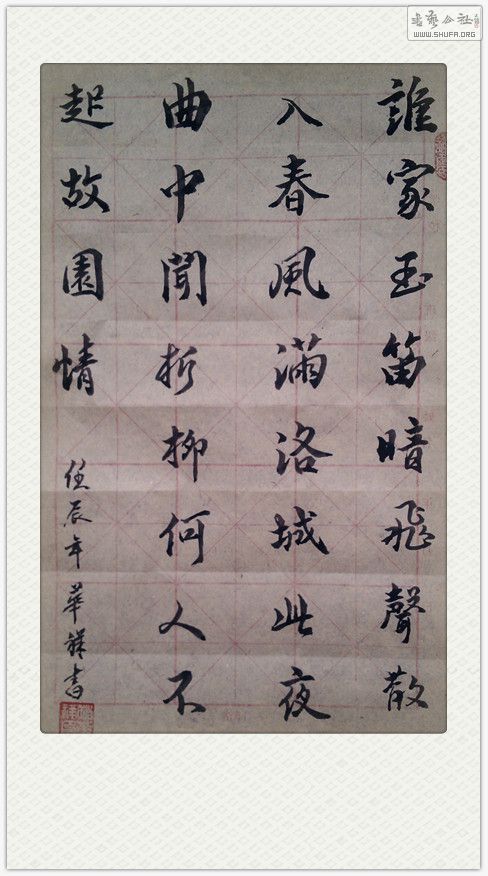 誰家玉笛暗飛聲散
入春風滿洛城此夜
曲中聞折柳何人不
起故園情
任辰年華錄書
WWW.SHUFA.ORG